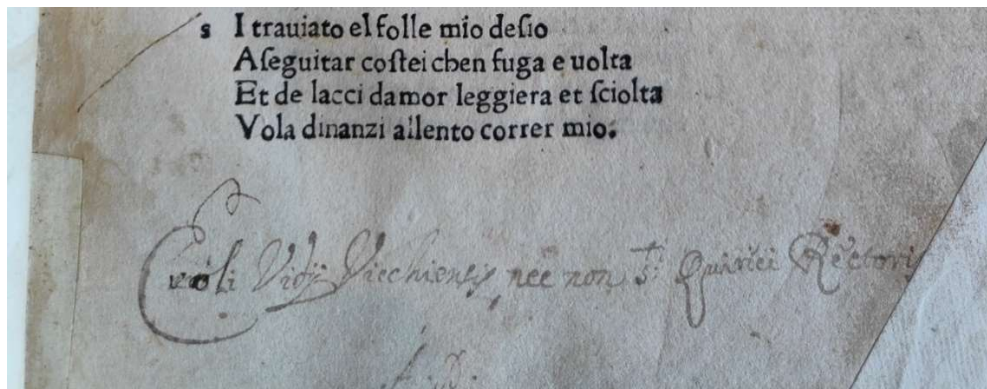 s I trauiato el folle mio desio
A seguitar costei chen fuga e uolta
Et de lacci damor leggiera et sciolta
Vola dinanzi allento correr mio.
Vidij Vicchiensis nec non S.ti Quirici Rectoris